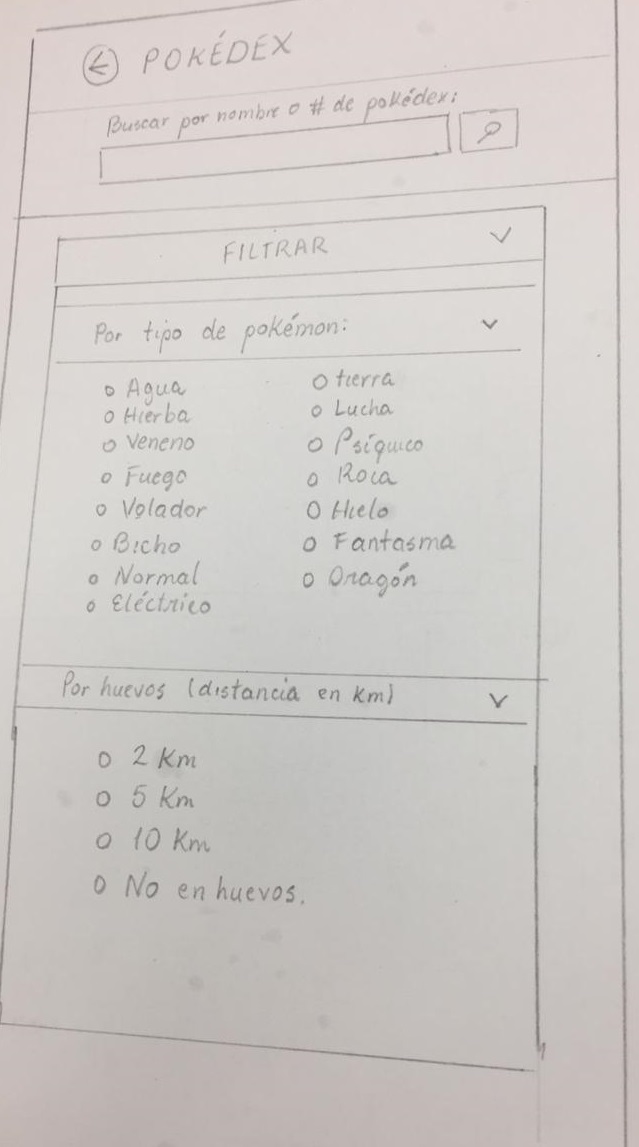 POKÉDEX
Buscar por nombre o # de pokédex:
FILTRAR
Por tipo de pokémon:
Agua
Hierba
Veneno
Fuego
Volador
Bicho
Normal
Eléctrico
tierra
Lucha
Psíquico
Roca
Hielo
Fantasma
Dragón
Por huevos (distancia en km)
2 Km
5 Km
10 Km
No en huevos.